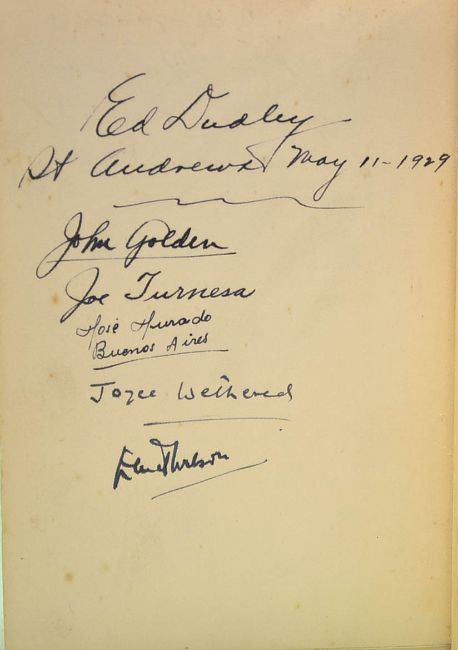 Ed Dudley
St Andrews May 11-1929
John Golden
Joe Turnesa
José Jurado
Buenos Aires
Joyce Wethered